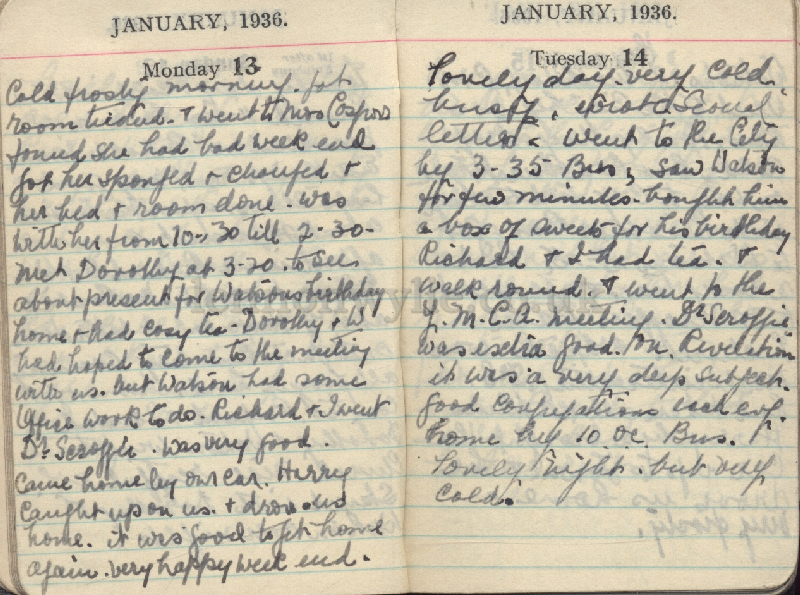 JANUARY, 1936.
Monday 13
Cold frosty morning. got
room tidied. & went to Mrs
found she had bad week end
got her sponged & changed &
her bed & room done. was
with her from 10-30 till 2-30-
met Dorothy at 3-20. to see
about present for Watsons birthday
home & had cosy tea. Dorothy & W
had hoped to come to the meeting
with us. but Watson had some
Office work to do. Richard & I went
Dr Scroggie. was very good.
came home by our car. Harry
caught up on us. & drove us
home. it was good to get home
again. very happy week end.
JANUARY, 1936.
Tuesday 14
Lovely day. very cold.
busy, wrote several
letters. went to the City
by 3-35 Bus, saw Watson
for few minutes. bought him
a box of sweets for his birthday
Richard & I had tea. &
walk round. & went to the
Y.M.C.A. meeting. Dr Scroggie
was extra good. on. Revelation
it was a very deep subject.
good congregations each evg.
home by 10 oc. Bus.
Lovely night. but very
cold.